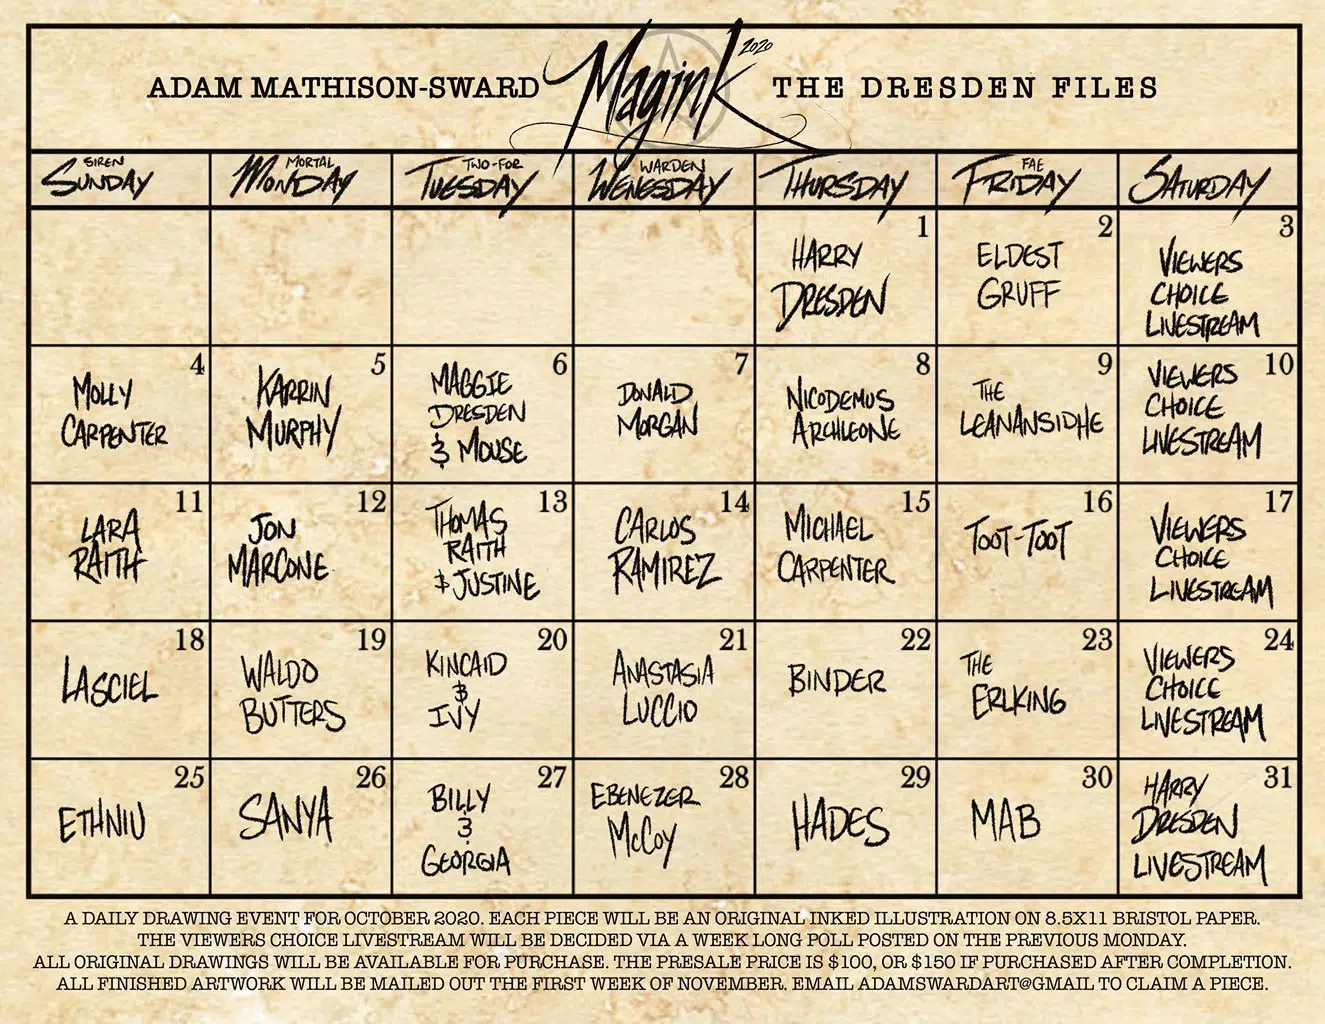 ADAM MATHISON-SWARD Magink 2020 THE DRESDEN FILES
SIREN SUNDAY
MORTAL MONDAY
TWO-FOR TUESDAY
WARDEN WENESDAY
THURSDAY
FAE FRIDAY
SATURDAY
1
HARRY
DRESDEN
2
ELDEST
GRUFF
3
VIEWERS
CHOICE
LIVESTREAM
4
MOLLY
CARPENTER
5
KARRIN
MURPHY
6
MAGGIE
DRESDEN
& MOUSE
7
DONALD
MORGAN
8
NICODEMUS
ARCHLEONE
9
THE
LEANANSIDHE
10
VIEWERS
CHOICE
LIVESTREAM
11
LARA
RAITH
12
JON
MARCONE
13
THOMAS
RAITH
& JUSTINE
14
CARLOS
RAMIREZ
15
MICHAEL
CARPENTER
16
TOOT-TOOT
17
VIEWERS
CHOICE
LIVESTREAM
18
LASCIEL
19
WALDO
BUTTERS
20
KINCAID
&
IVY
21
ANASTASIA
LUCCIO
22
BINDER
23
THE
ERLKING
24
VIEWERS
CHOICE
LIVESTREAM
25
ETHNIU
26
SANYA
27
BILLY
&
GEORGIA
28
EBENEZER
McCOY
29
HADES
30
MAB
31
HARRY
DRESDEN
LIVESTREAM
A DAILY DRAWING EVENT FOR OCTOBER 2020. EACH PIECE WILL BE AN ORIGINAL INKED ILLUSTRATION ON 8.5X11 BRISTOL PAPER.
THE VIEWERS CHOICE LIVESTREAM WILL BE DECIDED VIA A WEEK LONG POLL POSTED ON THE PREVIOUS MONDAY.
ALL ORIGINAL DRAWINGS WILL BE AVAILABLE FOR PURCHASE. THE PRESALE PRICE IS $100, OR $150 IF PURCHASED AFTER COMPLETION.
ALL FINISHED ARTWORK WILL BE MAILED OUT THE FIRST WEEK OF NOVEMBER. EMAIL ADAMSWARDART@GMAIL TO CLAIM A PIECE.